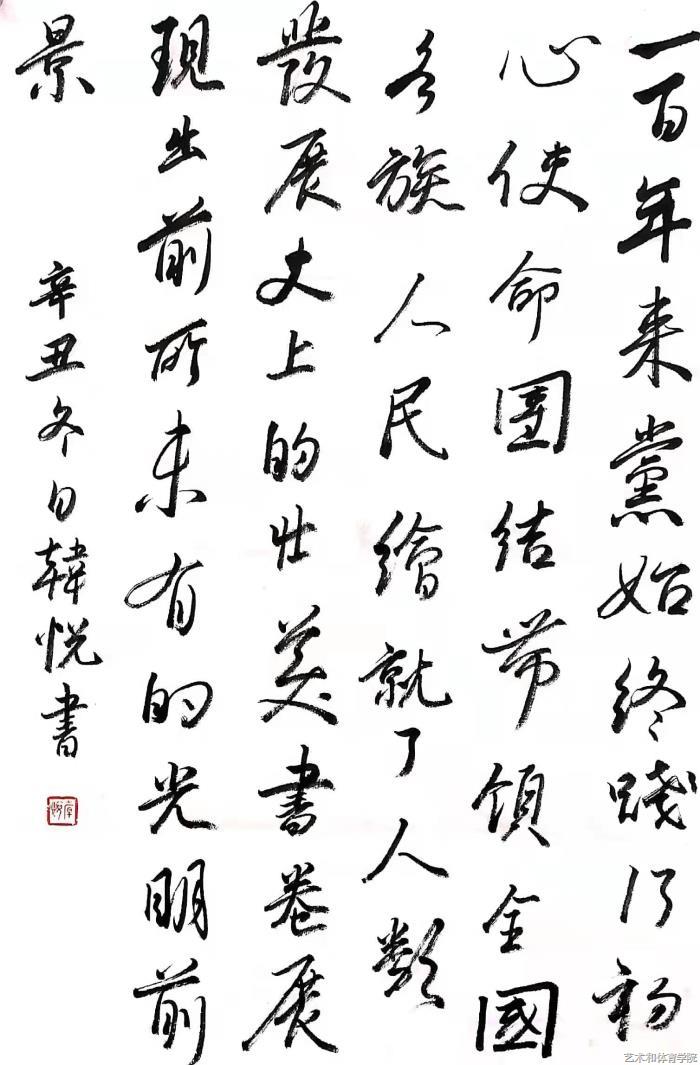 一百年来黨始终踐行初
心使命團结带領全國
各族人民繪就了人類
發展史上的壮美書卷展
現出前所未有的光明前
景
辛丑冬日韓悦書
艺术和体育学院